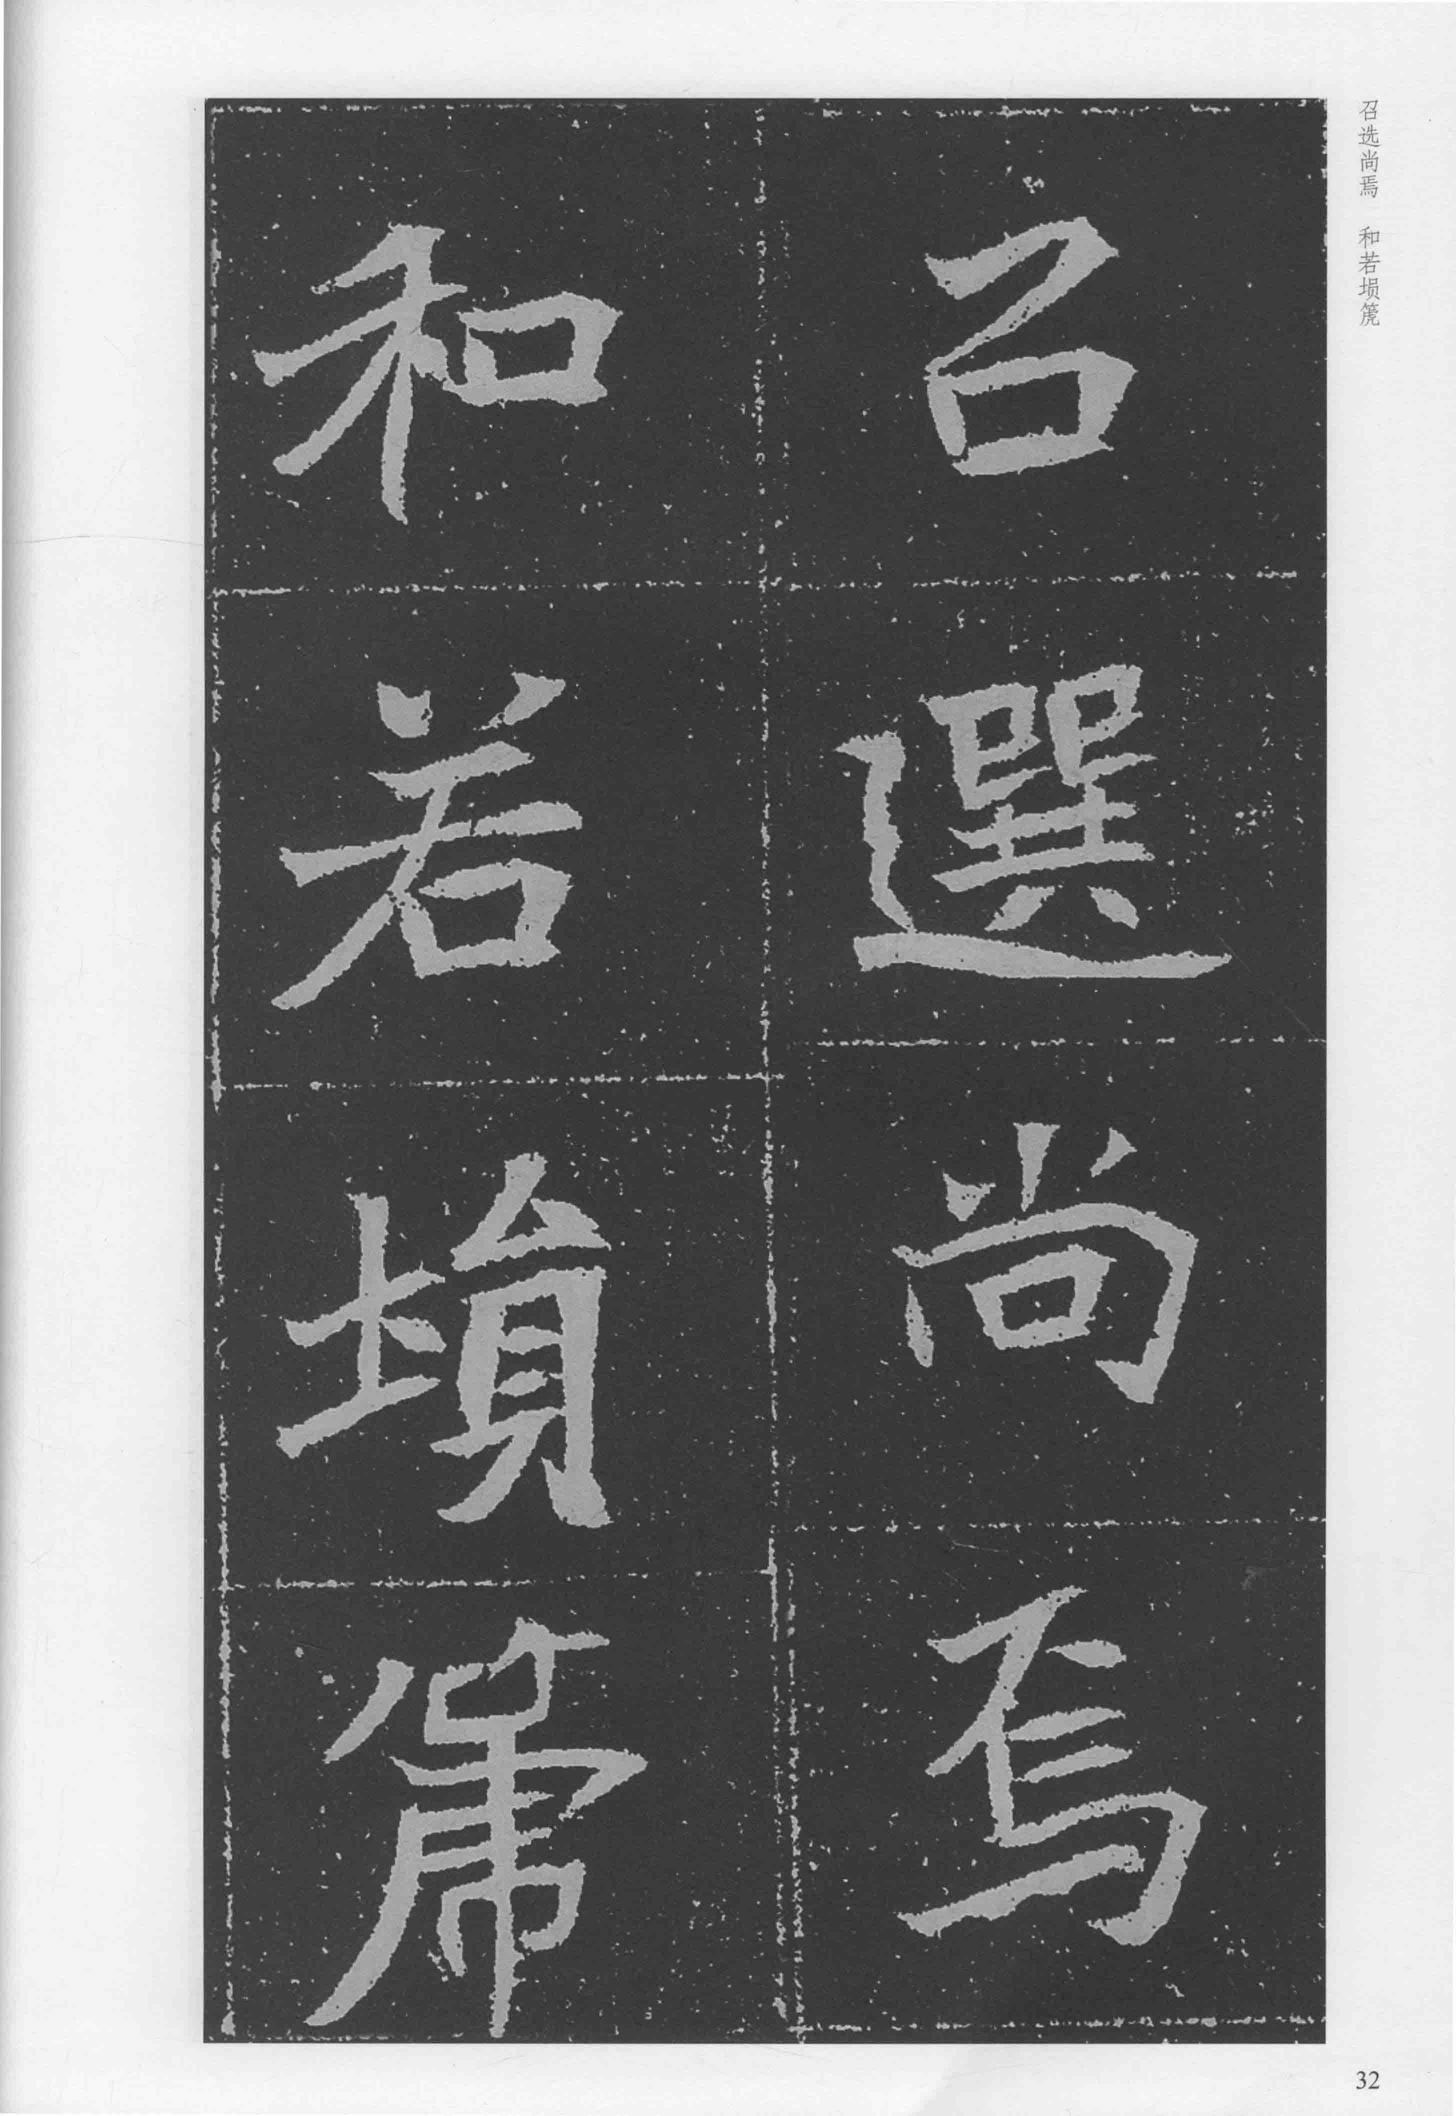 召选尚焉 和若埙篪
召選尚焉
和若塤箎
32